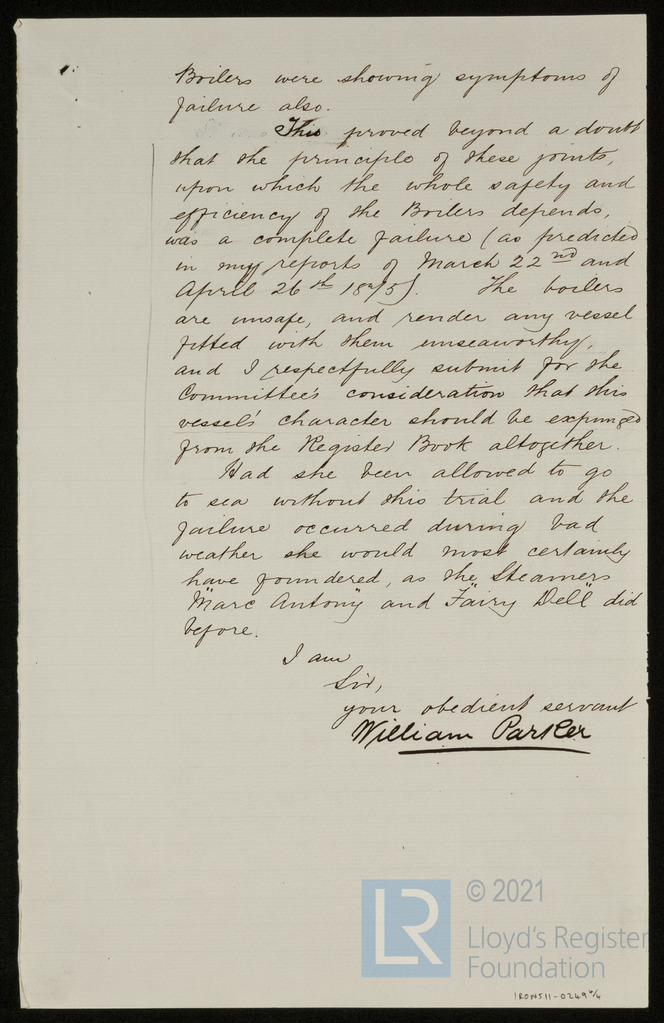 Boilers were showing symptoms of
failure also.
This proved beyond a doubt
that the principle of these joints,
upon which the whole safety and
efficiency of the Boilers depends,
was a complete failure (as predicted
in my reports of March 22nd and
April 26th 1875). The boilers
are unsafe, and render any vessel
fitted with them unseaworthy,
and I respectfully submit for the
Committee's consideration that this
vessel's character should be expunged
from the Register Book altogether.
Had she been allowed to go
to sea without this trial and the
failure occurred during bad
weather she would most certainly
have foundered, as the Steamers
"Marc Antony" and "Fairy Dell" did
before.
I am
Sir,
your obedient servant
William Parker
LR
© 2021
Lloyd's Register
Foundation
IRON511-0249 4/4